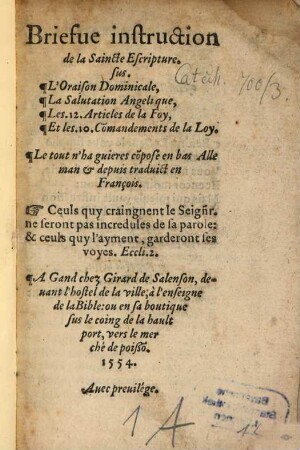 Briefue instruction
de la Saincte Escripture.
sus.
¶L'Oraison Dominicale,
¶La Salutation Angelique,
¶Les.12. Articles de la Foy,
¶Et les.10. Cōmandements de la Loy.
Catech. 700/3
¶Le tout n'ha guieres cōposé en bas Alle
man & depuis traduict en
François.
☞ Ceuls quy craingnent le Seigñr.
ne seront pas incredules de sa parole:
& ceuls quy l'ayment, garderont les
voyes. Eccli.2.
¶A Gand chez Girard de Salenson, de-
uant l'hostel de la ville; à l'enseigne
de la Bible: ou en sa boutique
sus le coing de la hault
port, vers le mer
ché de poissō.
1554.
Auec preuilége.
1 A